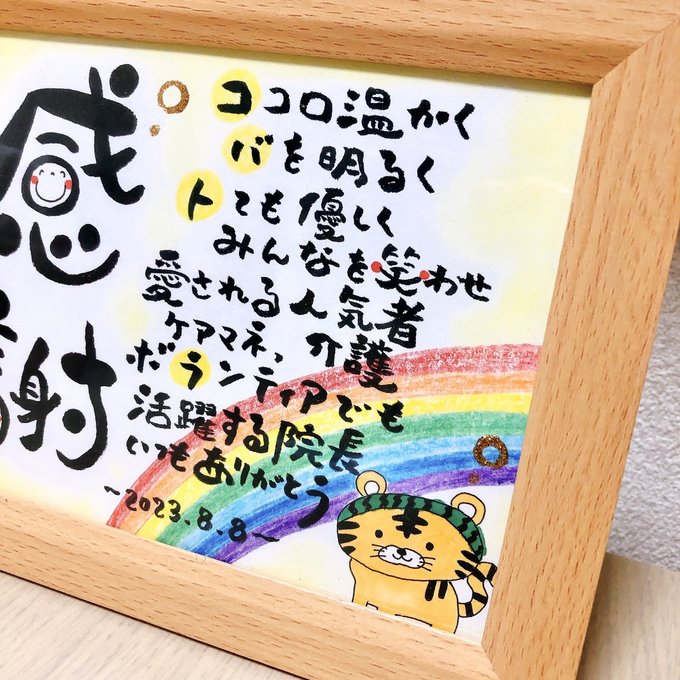 感謝
ココロ温かく
バを明るく
トても優しく
みんなを笑わせ
愛される人気者
ケアマネ、介護
ボランティアでも
活躍する院長
いつもありがとう
~2023.8.8~